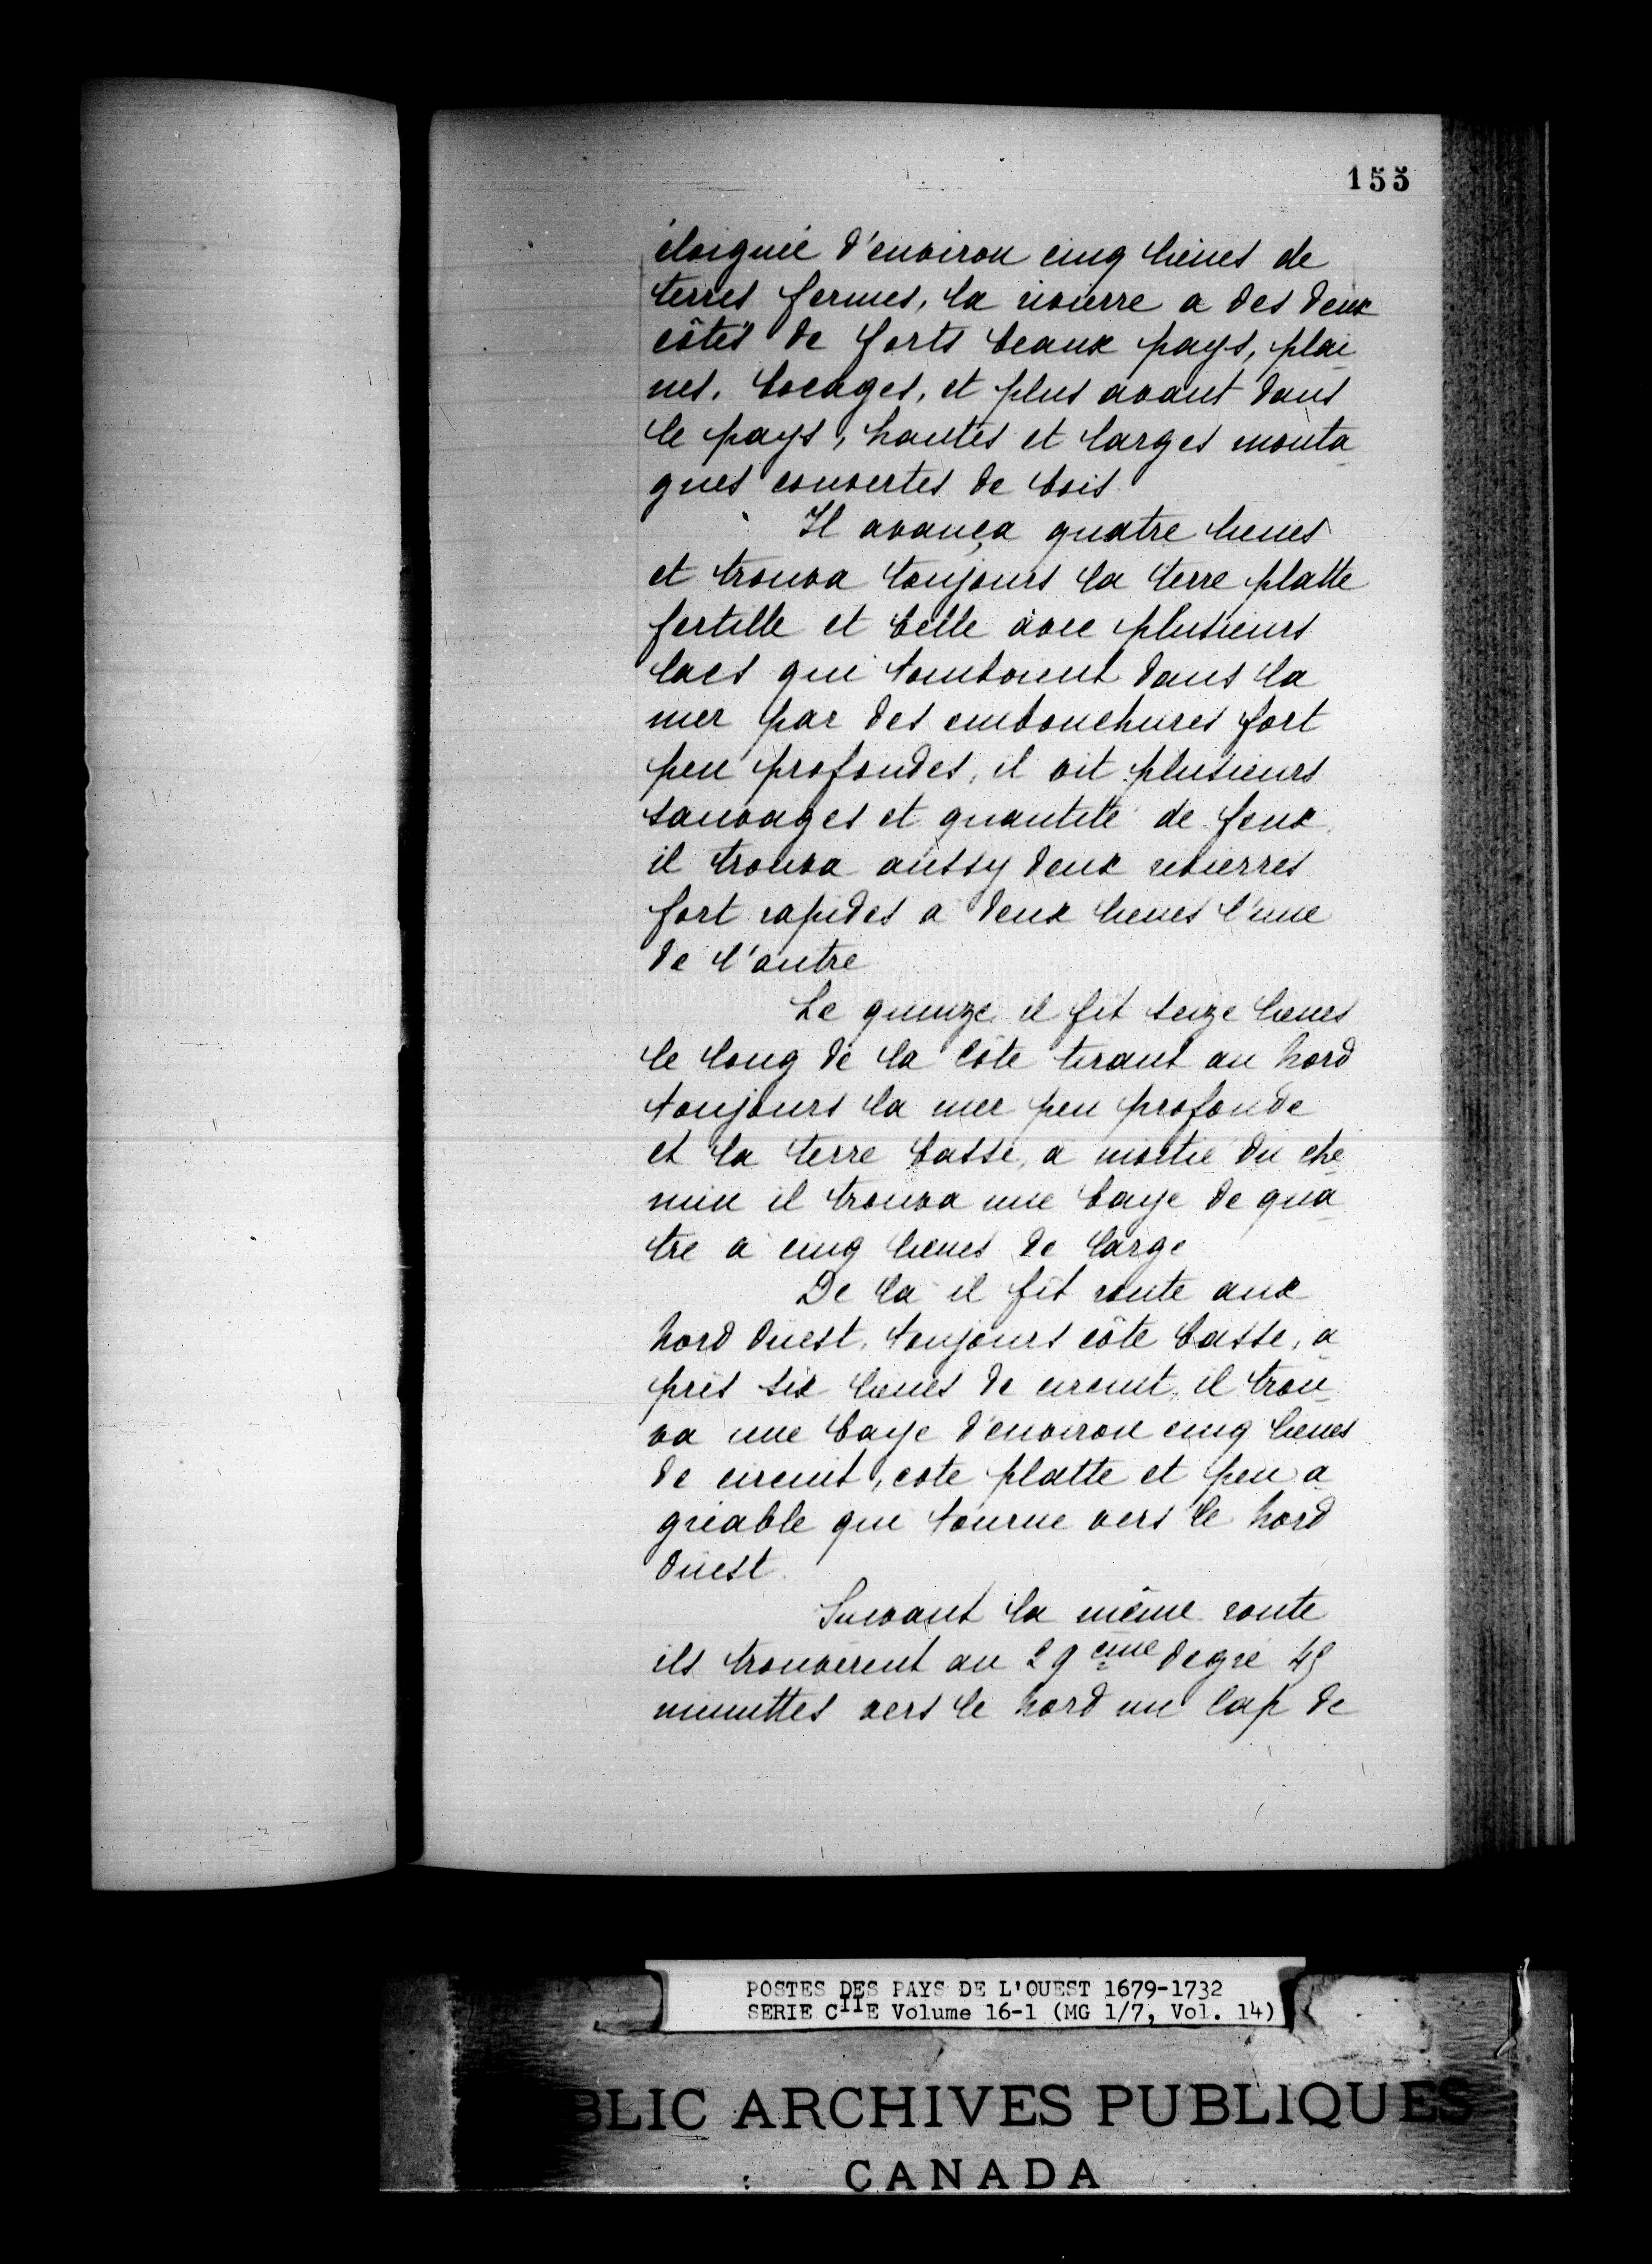 155
éloignée d'environ cinq lieues de
terres fermes, la rivierre a des deux
côtés de forts beaux pays, plai
nes, bocages, et plus avant dans
le pays, hautes et larges monta
gnes couvertes de bois
Il avança quatre lieues
et trouva toujours la terre platte
fertille et belle avec plusieurs
lacs qui tomboient dans la
mer par des embouchures fort
peu profondes, il vit plusieurs
sauvages et quantité de feux,
il trouva aussy deux rivierres
fort rapides a deux lieues l'une
de l'autre
Le quinze il fit seize lieues
le long de la côte tirant au Nord
toujours la mer peu profonde
et la terre basse, a moitié du che
min il trouva une baye de qua
tre à cinq lieues de large
De la il fit route aux
Nord Ouest, toujours côte basse, a
près six lieues de circuit, il trou
va une baye d'environ cinq lieues
de circuit, cote platte et peu a
gréable qui tourne vers le Nord
Ouest.
Suivant la même route
ils trouverent au 29 eme degré 45
minuttes vers le Nord un Cap de
POSTES DES PAYS DE L'OUEST 1679-1732
SERIE C11E Volume 16-1 (MG 1/7, Vol. 14)
BLIC ARCHIVES PUBLIQUES
CANADA